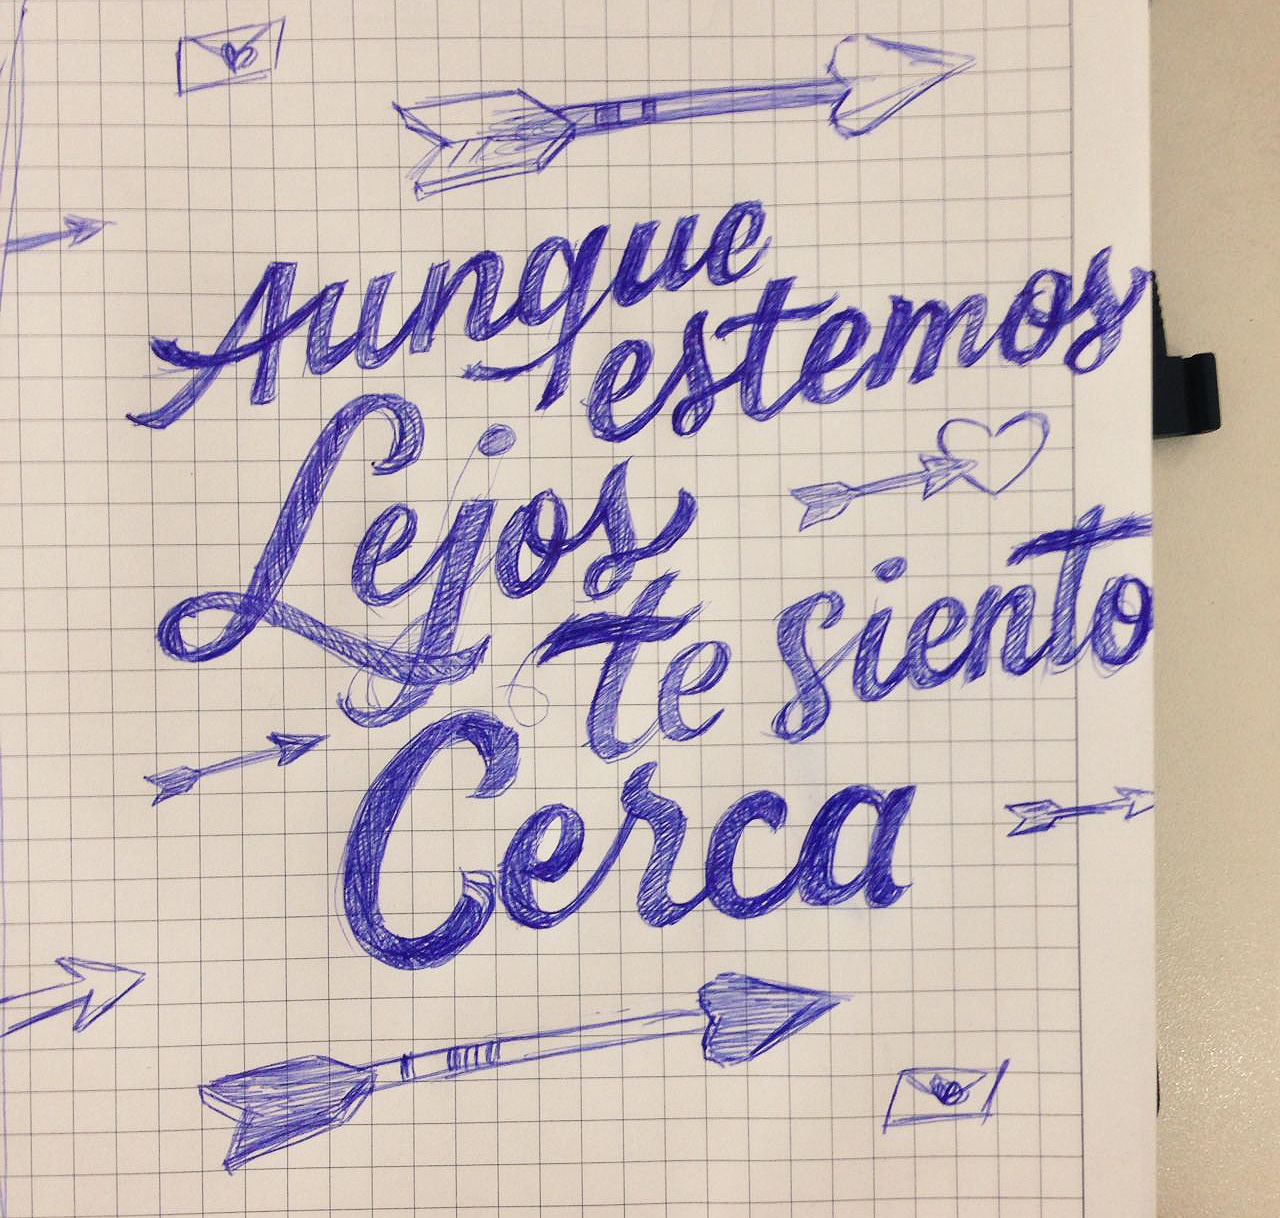 Aunque
estemos
Lejos
te siento
Cerca